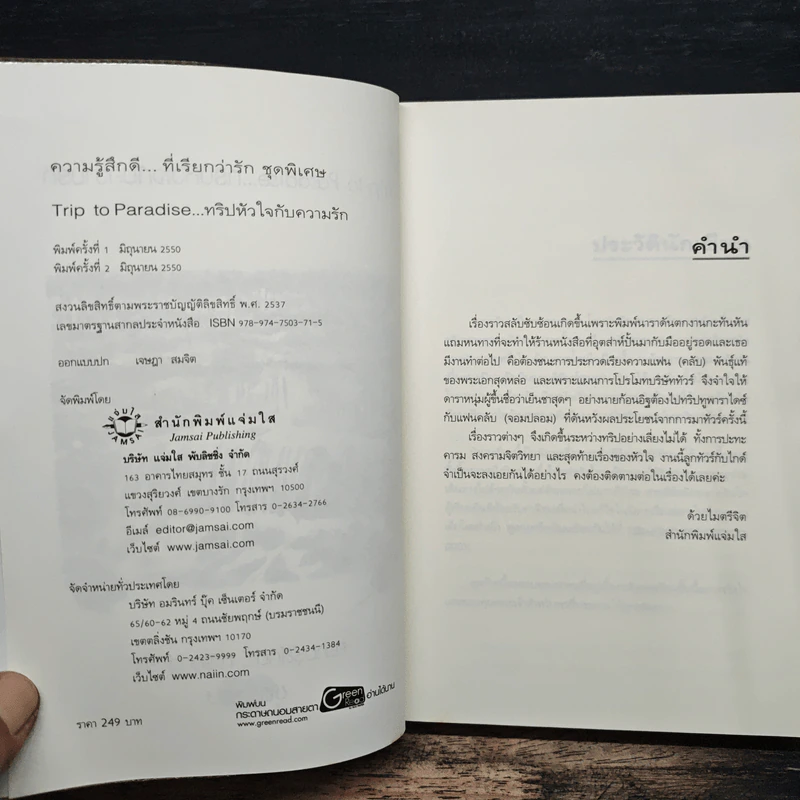 ความรู้สึกดี... ที่เรียกว่ารัก ชุดพิเศษ
Trip to Paradise...ทริปหัวใจกับความรัก
พิมพ์ครั้งที่ 1 มิถุนายน 2550
พิมพ์ครั้งที่ 2 มิถุนายน 2550
สงวนลิขสิทธิ์ตามพระราชบัญญัติลิขสิทธิ์ พ.ศ. 2537
เลขมาตรฐานสากลประจำหนังสือ ISBN 978-974-7503-71-5
ออกแบบปก เจษฎา สมจิต
จัดพิมพ์โดย
แจ่มใส
JAMSAI
สำนักพิมพ์แจ่มใส
Jamsai Publishing
บริษัท แจ่มใส พับลิชชิ่ง จำกัด
163 อาคารไทยสมุทร ชั้น 17 ถนนสุรวงศ์
แขวงสุริยวงศ์ เขตบางรัก กรุงเทพฯ 10500
โทรศัพท์ 08-6990-9100 โทรสาร 0-2634-2766
อีเมล์ editor@jamsai.com
เว็บไซต์ www.jamsai.com
จัดจำหน่ายทั่วประเทศโดย
บริษัท อมรินทร์ บุ๊ค เซ็นเตอร์ จำกัด
65/60-62 หมู่ 4 ถนนชัยพฤกษ์ (บรมราชชนนี)
เขตตลิ่งชัน กรุงเทพฯ 10170
โทรศัพท์ 0-2423-9999 โทรสาร 0-2434-1384
เว็บไซต์ www.naiin.com
พิมพ์บน
กระดาษถนอมสายตา Green Read อ่านได้นาน
www.greenread.com
ราคา 249 บาท
คำนำ
เรื่องราวสลับซับซ้อนเกิดขึ้นเพราะพิมพ์นาราดันตกงานกะทันหัน
แถมหนทางที่จะทำให้ร้านหนังสือที่อุตส่าห์ปั้นมากับมืออยู่รอดและเธอ
มีงานทำต่อไป คือต้องชนะการประกวดเรียงความแฟน (คลับ) พันธุ์แท้
ของพระเอกสุดหล่อ และเพราะแผนการโปรโมทบริษัททัวร์ จึงจำใจให้
ดาราหนุ่มผู้ขึ้นชื่อว่าเย็นชาสุดๆ อย่างนายก้อนอิฐต้องไปทริปทูพาราไดซ์
กับแฟนคลับ (จอมปลอม) ที่ดันหวังผลประโยชน์จากการมาทัวร์ครั้งนี้
เรื่องราวต่างๆ จึงเกิดขึ้นระหว่างทริปอย่างเลี่ยงไม่ได้ ทั้งการปะทะ
คารม สงครามจิตวิทยา และสุดท้ายเรื่องของหัวใจ งานนี้ลูกทัวร์กับไกด์
จำเป็นจะลงเอยกันได้อย่างไร คงต้องติดตามต่อในเรื่องได้เลยค่ะ
ด้วยไมตรีจิต
สำนักพิมพ์แจ่มใส